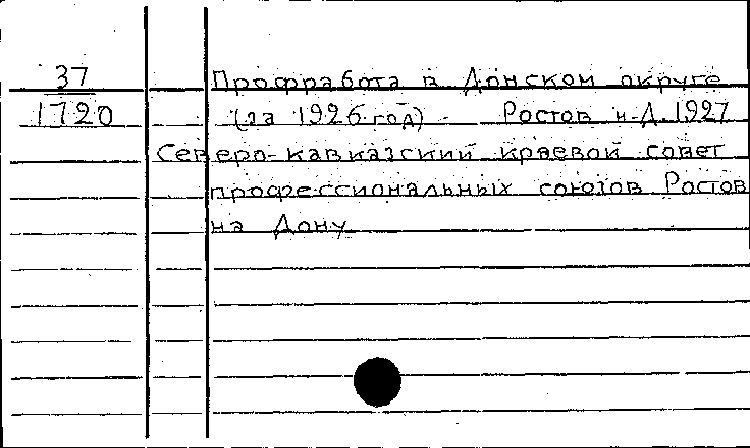 37 Профработа в Донском округе
1720 (за 1926 год) Ростов н-Д. 1927
Северо-кавказский краевой совет
профессиональных союзов Ростов
на Дону